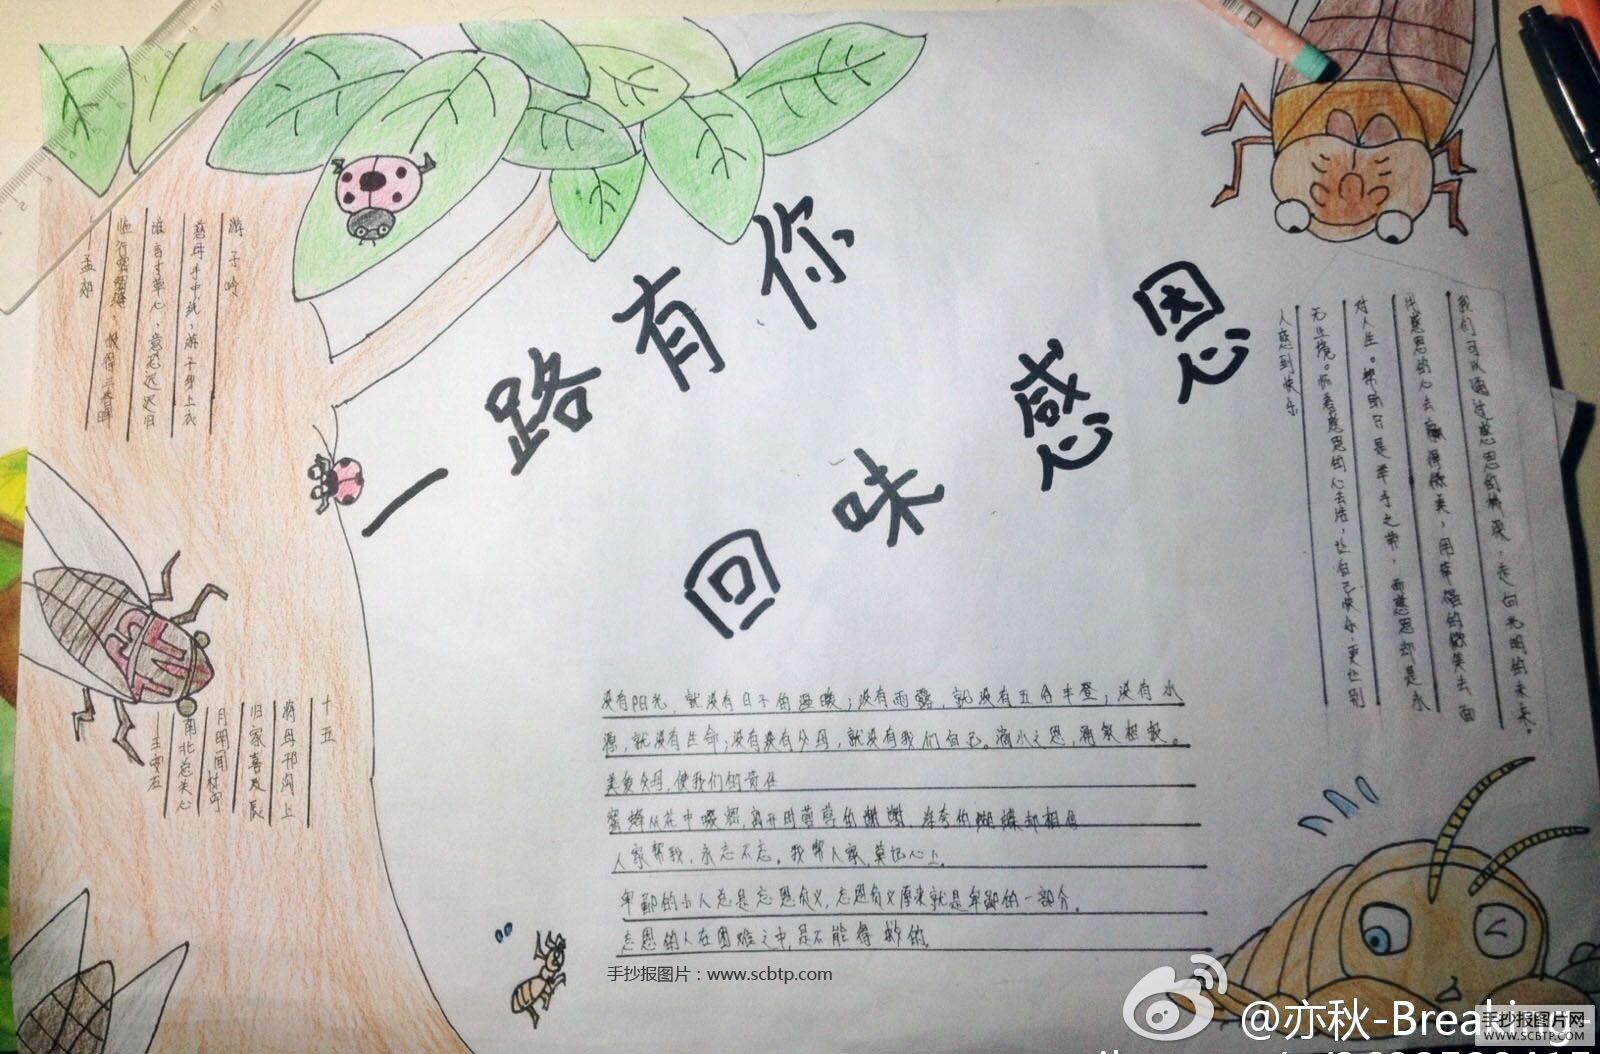 一路有你
回味感恩
游子吟
慈母手中线,游子身上衣
临行密密缝,
谁言寸草心,意恐迟迟归
—孟郊
十五
将母邗沟上
归家喜
月明闻
南北总关心
我们可以通过感恩的桥梁,走向光明的未来。
代感恩的心去
对人生。帮助只是举手之劳,而感恩却是永
无止境。怀着感恩的心去活,让自己快乐,更让别
人感到快乐
没有阳光,就没有日子的温暖;没有雨露,就没有五谷丰登;没有水
源,就没有生命;没有父母,就没有我们自己。滴水之恩,涌泉相报。
父母,使我们的责任
蜜蜂从花中啜蜜,离开时营营的
人家帮我,永志不忘。我帮人家,莫记心上。
卑鄙的小人总是忘恩负义,忘恩负义原来就是卑鄙的一部分。
忘恩的人在困难之中,是不能得救的。
手抄报图片:www.scbtp.com
@亦秋-Breaking-
手抄报图片网
WWW.SCBTP.COM